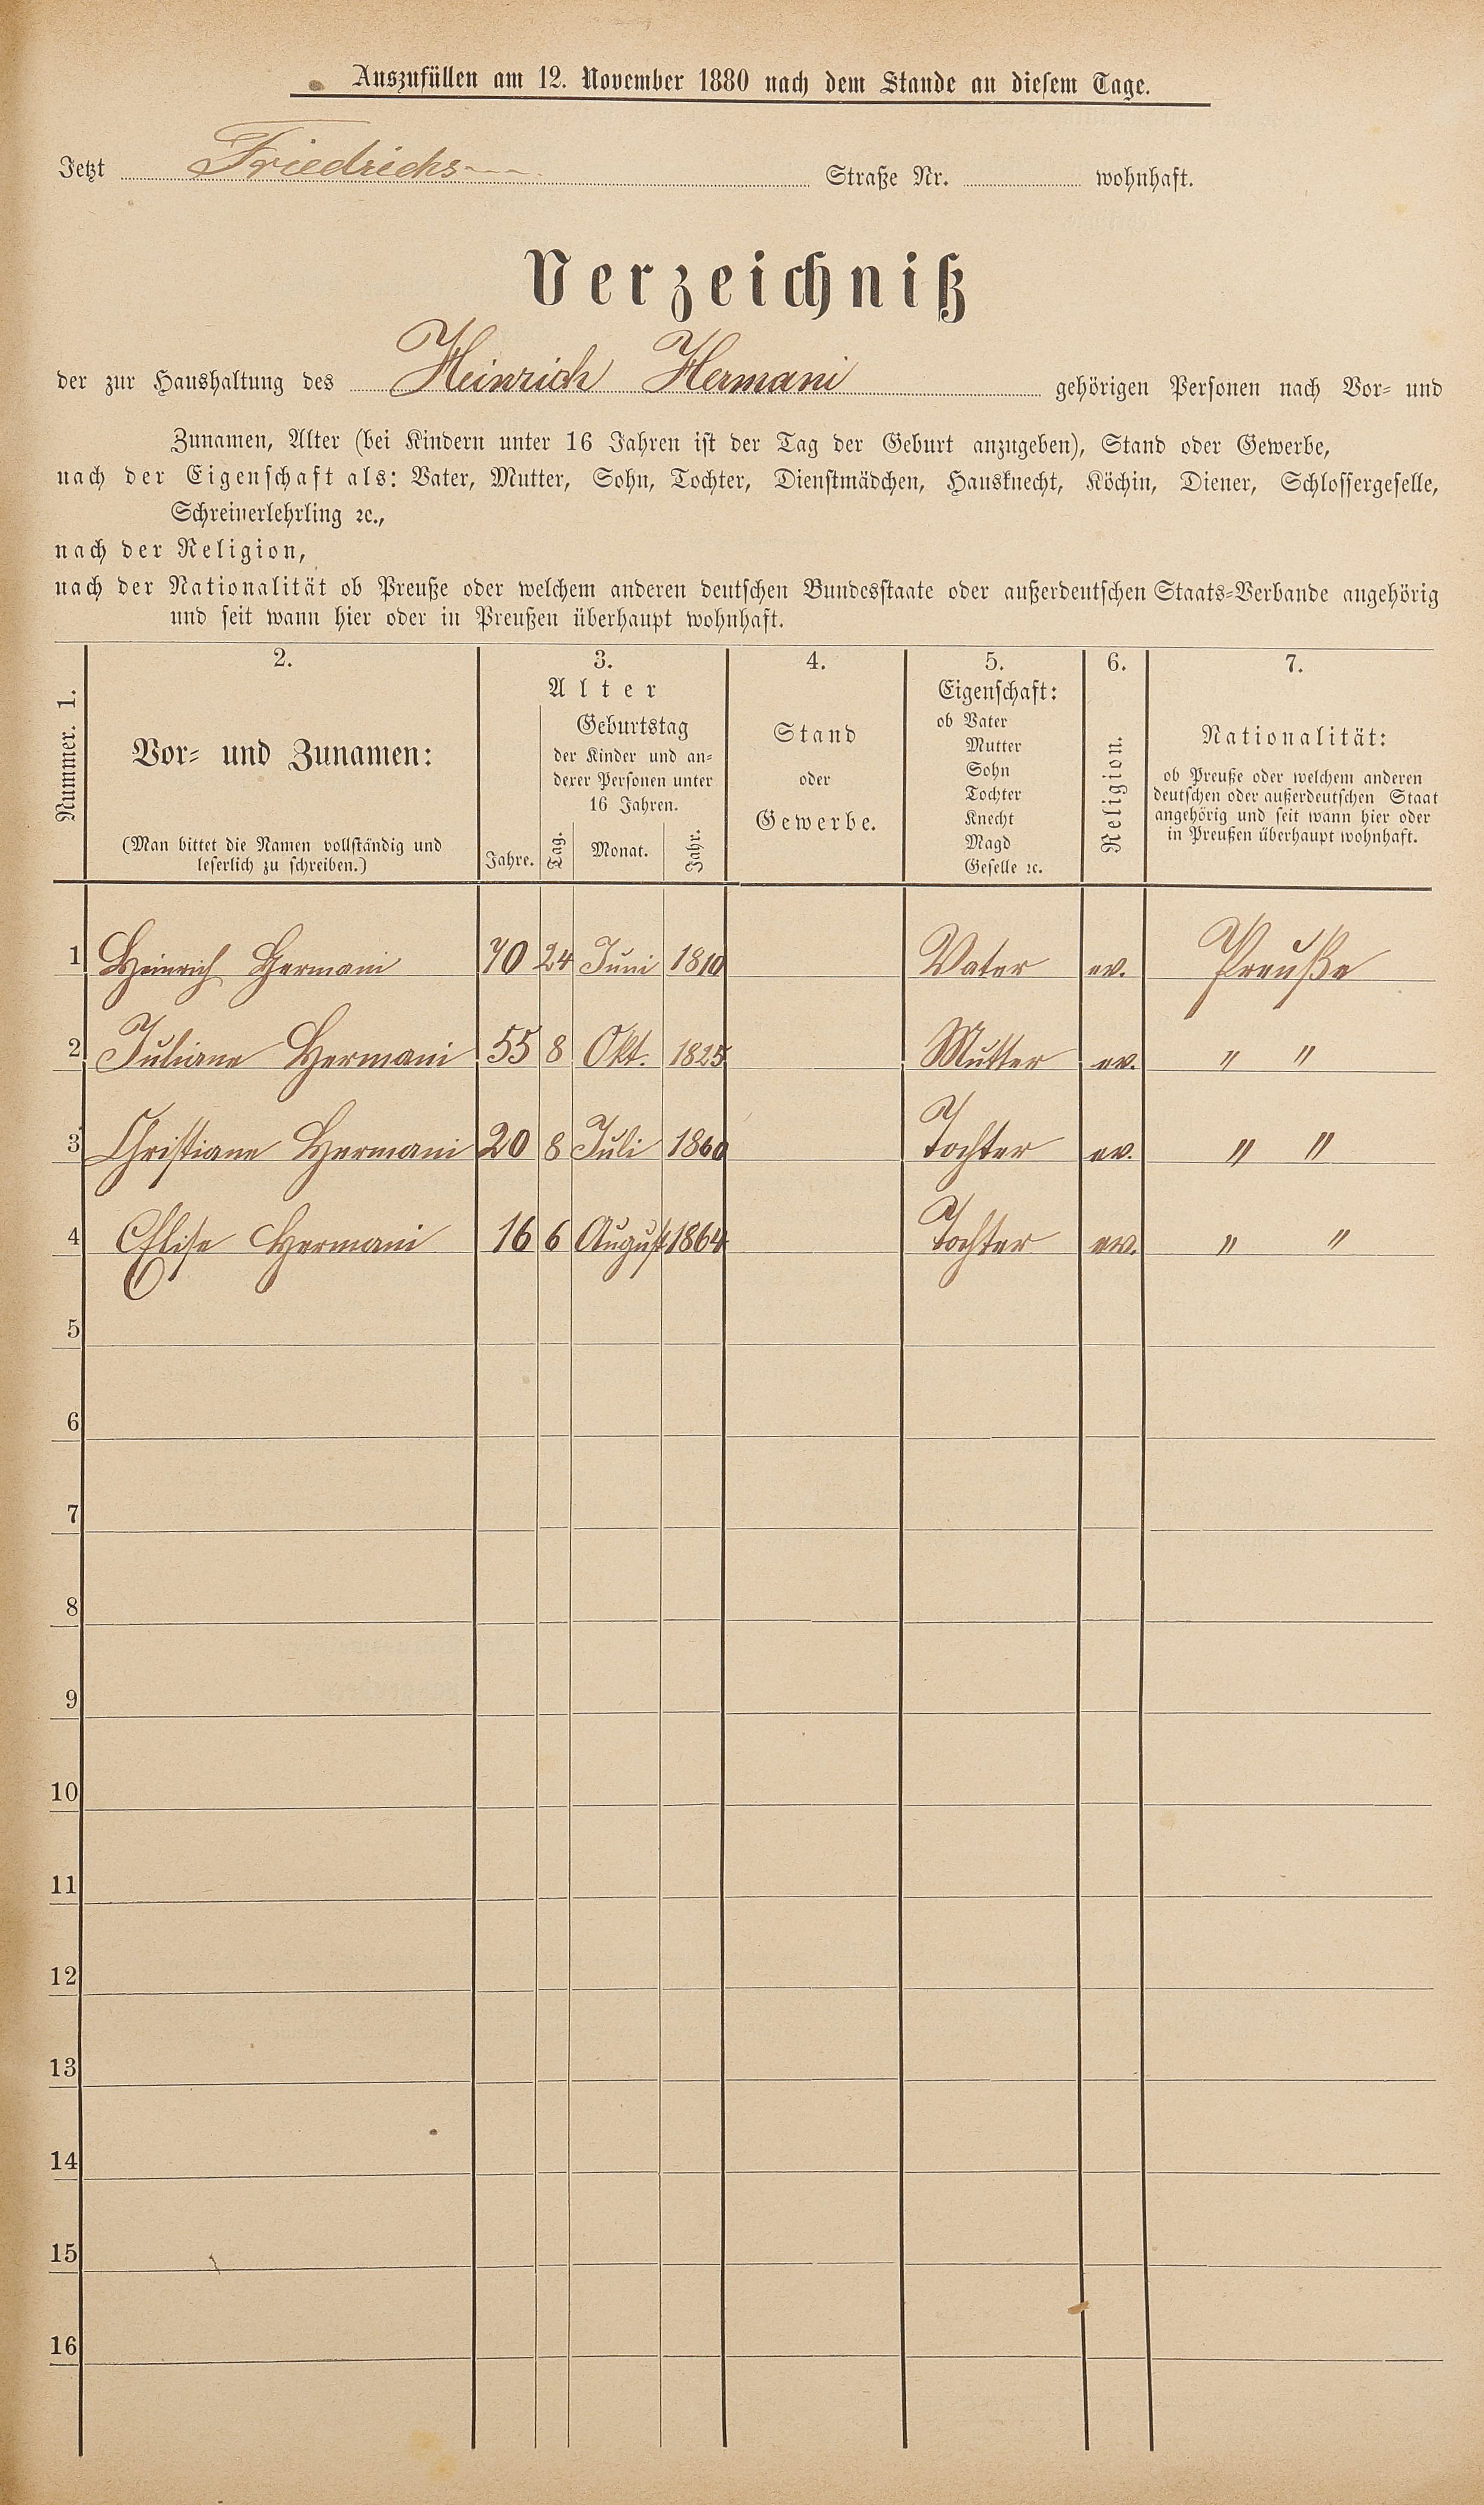 Auszufüllen am 12. November 1880 nach dem Stande an diesem Tage.
Jetzt Friedrichs- Straße Nr. wohnhaft.
Verzeichniß
der zur Haushaltung des Heinrich Hermani gehörigen Personen nach Vor- und
Zunamen, Alter (bei Kindern unter 16 Jahren ist der Tag der Geburt anzugeben), Stand oder Gewerbe,
nach der Eigenschaft als: Vater, Mutter, Sohn, Tochter, Dienstmädchen, Hausknecht, Köchin, Diener, Schlossergeselle,
Schreinerlehrling ꝛc.,
nach der Religion,
nach der Nationalität ob Preuße oder welchem anderen deutschen Bundesstaate oder außerdeutschen Staats-Verbande angehörig
und seit wann hier oder in Preußen überhaupt wohnhaft.
Nummer. 1.
2.
Vor- und Zunamen:
(Man bittet die Namen vollständig und
leserlich zu schreiben.)
3.
Alter
Jahre.
Geburtstag
der Kinder und an-
derer Personen unter
16 Jahren.
Tag. Monat. Jahr.
4.
Stand
oder
Gewerbe.
5.
Eigenschaft:
ob Vater
Mutter
Sohn
Tochter
Knecht
Magd
Geselle ꝛc.
6.
Religion.
7.
Nationalität:
ob Preuße oder welchem anderen
deutschen oder außerdeutschen Staat
angehörig und seit wann hier oder
in Preußen überhaupt wohnhaft.
1 Heinrich Hermani 70 24 Juni 1810 Vater ev. Preuße
2 Juliane Hermani 55 8 Okt. 1825 Mutter ev. " "
3 Christiane Hermani 20 8 Juli 1860 Tochter ev. " "
4 Elise Hermani 16 6 August 1864 Tochter ev. " "
5
6
7
8
9
10
11
12
13
14
15
16